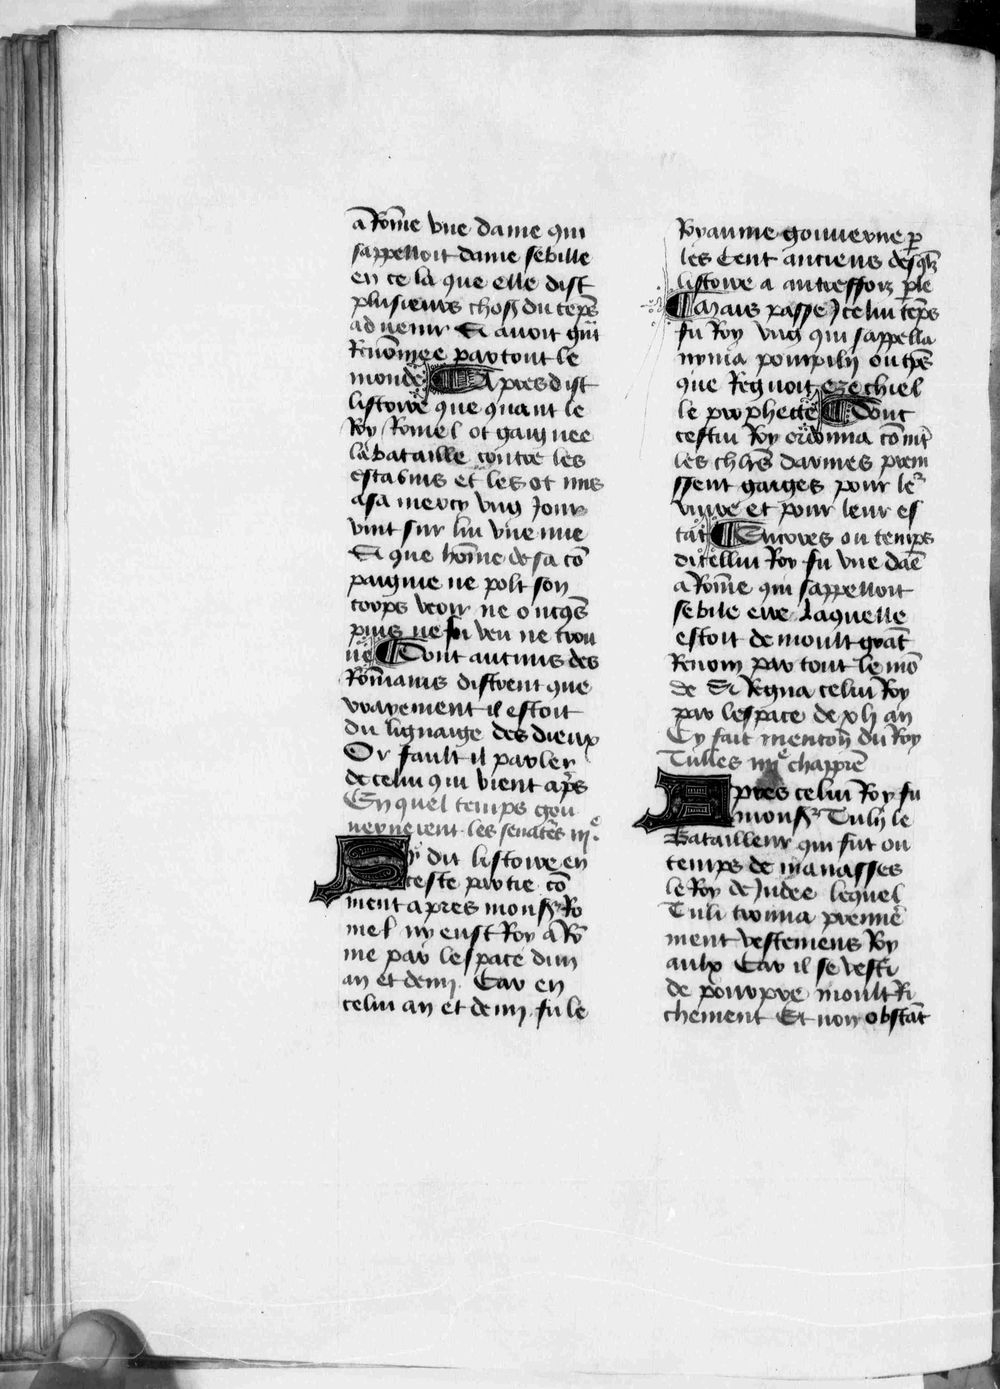 a Rom̄e vne dame qui
sappelloit dame sebille
en ce la que elle dist
plusieurs choss du tēps
aduenir Et auoit gnt
Renōmee partout le
monde ¶ Apres dist
listoire que quant le
Roy Romel ot gaignee
la bataille contre les
estabins et les ot mis
a sa mercy vng Jour
vint sur lui vne nue
Et que hōme de sa cō
paignie ne polt son
corps veoir ne oncqs
puis ne fu veu ne trou
ue ¶ Dont aucuns des
Rōmains distrent que
vrayement il estoit
du lignaige des dieux
Or fault il parler
de celui qui vient aps
En quel temps gou
uernerent les senatēs iijᵉ
Sy dit listoire en
ceste partie cō
ment apres monsʳ Ro
mel ny eust Roy a Rō
me par lespace dun
an et demy. Car en
celui an et demy fu le
Royaume gouuerne p̱
les Cent anciens desqlz
listoire a autreffoiz p̱le
¶ Mais passe Jcelui tēps
fu Roy vng qui sappella
numa pompily ou tps
que Regnoit ezechiel
le prophette ¶ Dont
cestui Roy ordonna cōmt
les chlrs darmes prein
ssent gaiges pour leʳ
viure et pour leur es
tat ¶ Encores ou temps
dicellui Roy fu vne daē
a Rōme qui sappelloit
sebile eree Laquelle
estoit de moult grāt
Renom par tout le mō
de Et Regna celui Roy
par lespace de xlj an
Cy fait mencōn du Roy
Tulles iiijᵉ chappr̄e
Apres celui Roy fu
monsʳ Tulij le
Batailleur qui fut ou
temps de manasses
le Roy de Judee lequel
Tuli trouua premie
ment vestemens Roy
aulx Car il se vesti
de pourpre moult Ri
chement Et non obstāt